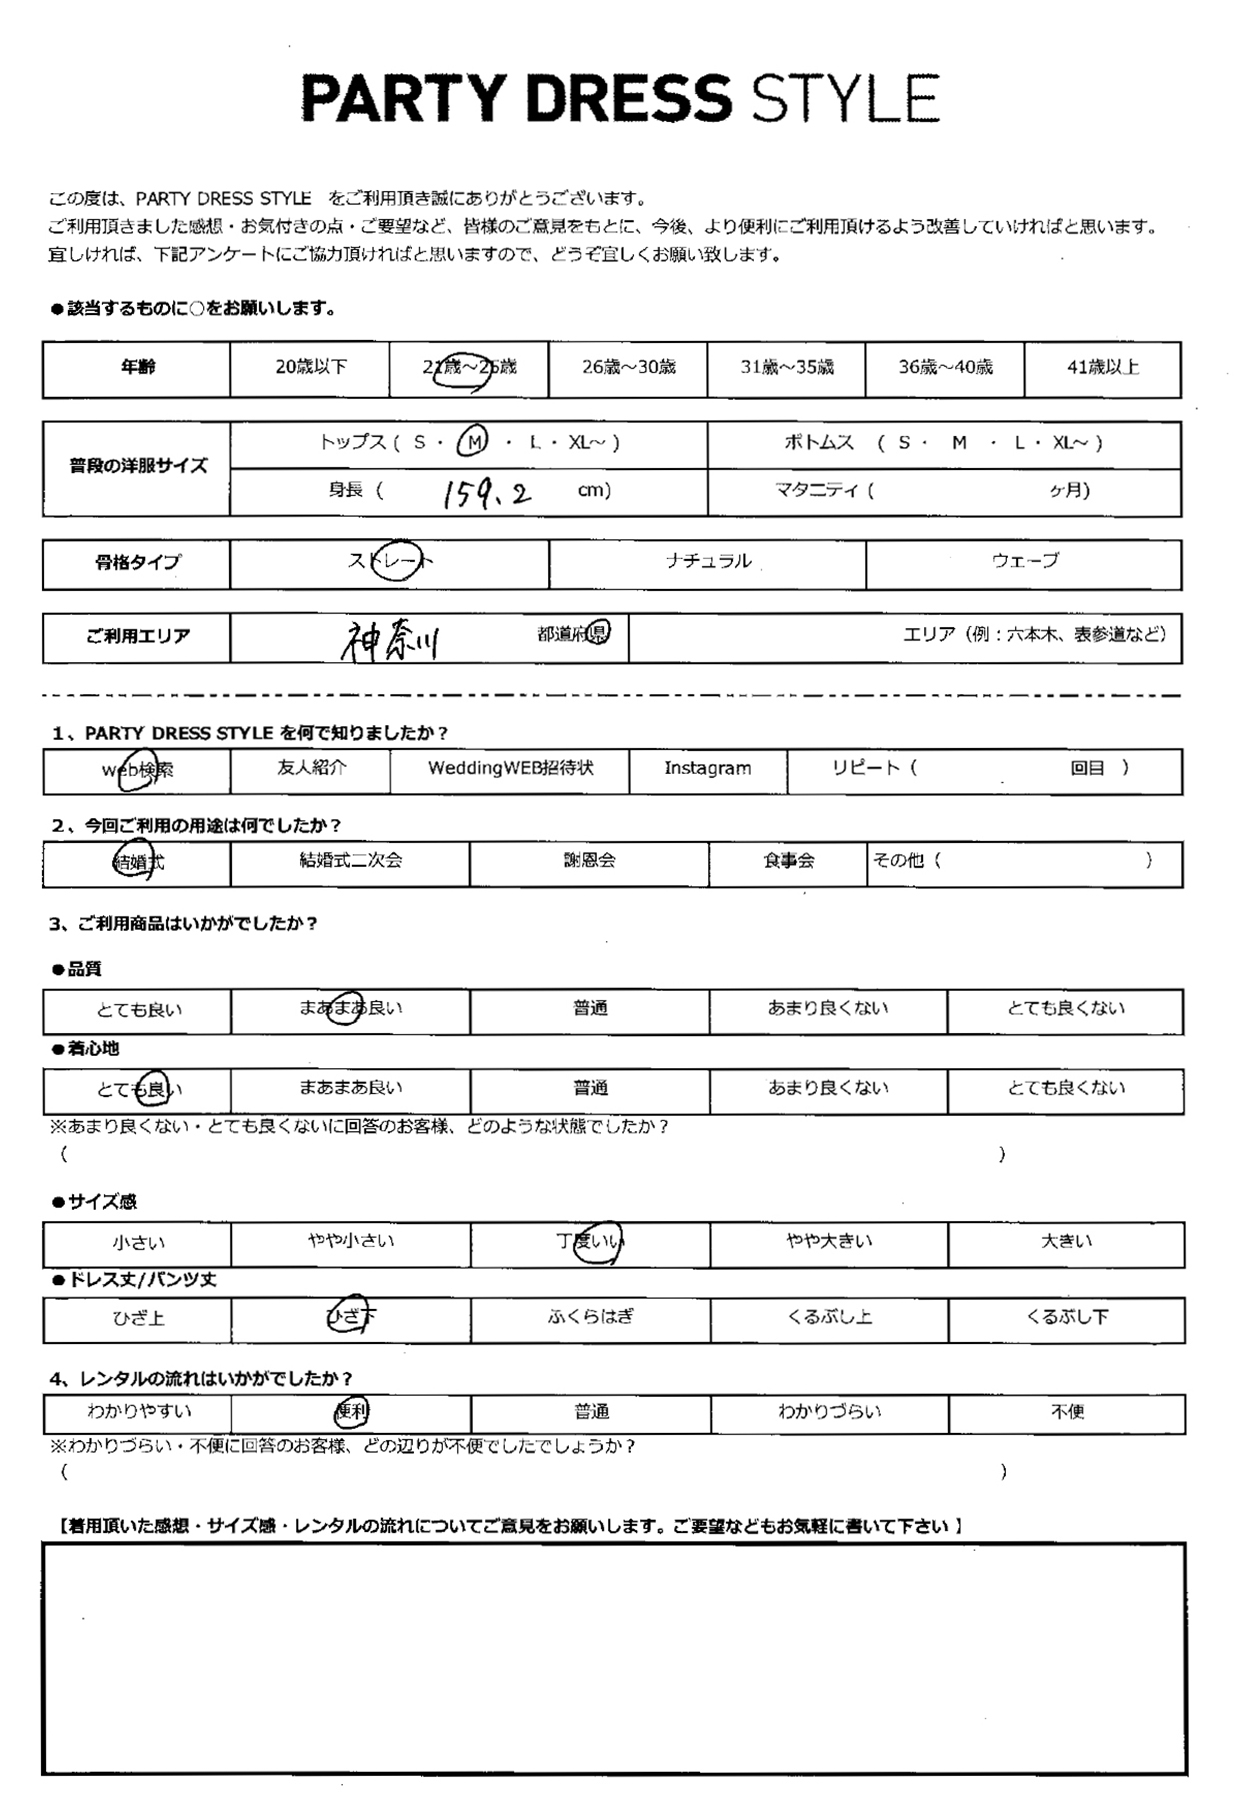 PARTY DRESS STYLE
この度は、PARTY DRESS STYLE をご利用頂き誠にありがとうございます。
ご利用頂きました感想・お気付きの点・ご要望など、皆様のご意見をもとに、今後、より便利にご利用頂けるよう改善していければと思います。
宜しければ、下記アンケートにご協力頂ければと思いますので、どうぞ宜しくお願い致します。
●該当するものに○をお願いします。
年齢 20歳以下 21歳～25歳 26歳～30歳 31歳～35歳 36歳～40歳 41歳以上
普段の洋服サイズ トップス ( S ・ M ・ L ・ XL～ ) ボトムス ( S ・ M ・ L ・ XL～ )
身長 ( 159.2 cm) マタニティ ( ヶ月)
骨格タイプ ストレート ナチュラル ウェーブ
ご利用エリア 神奈川 都道府県 エリア（例：六本木、表参道など）
1、PARTY DRESS STYLE を何で知りましたか？
web検索 友人紹介 WeddingWEB招待状 Instagram リピート ( 回目 )
2、今回ご利用の用途は何でしたか？
結婚式 結婚式二次会 謝恩会 食事会 その他 ( )
3、ご利用商品はいかがでしたか？
●品質
とても良い まあまあ良い 普通 あまり良くない とても良くない
●着心地
とても良い まあまあ良い 普通 あまり良くない とても良くない
※あまり良くない・とても良くないに回答のお客様、どのような状態でしたか？
( )
●サイズ感
小さい やや小さい 丁度いい やや大きい 大きい
●ドレス丈/パンツ丈
ひざ上 ひざ下 ふくらはぎ くるぶし上 くるぶし下
4、レンタルの流れはいかがでしたか？
わかりやすい 便利 普通 わかりづらい 不便
※わかりづらい・不便に回答のお客様、どの辺りが不便でしたでしょうか？
( )
【着用頂いた感想・サイズ感・レンタルの流れについてご意見をお願いします。ご要望などもお気軽に書いて下さい 】